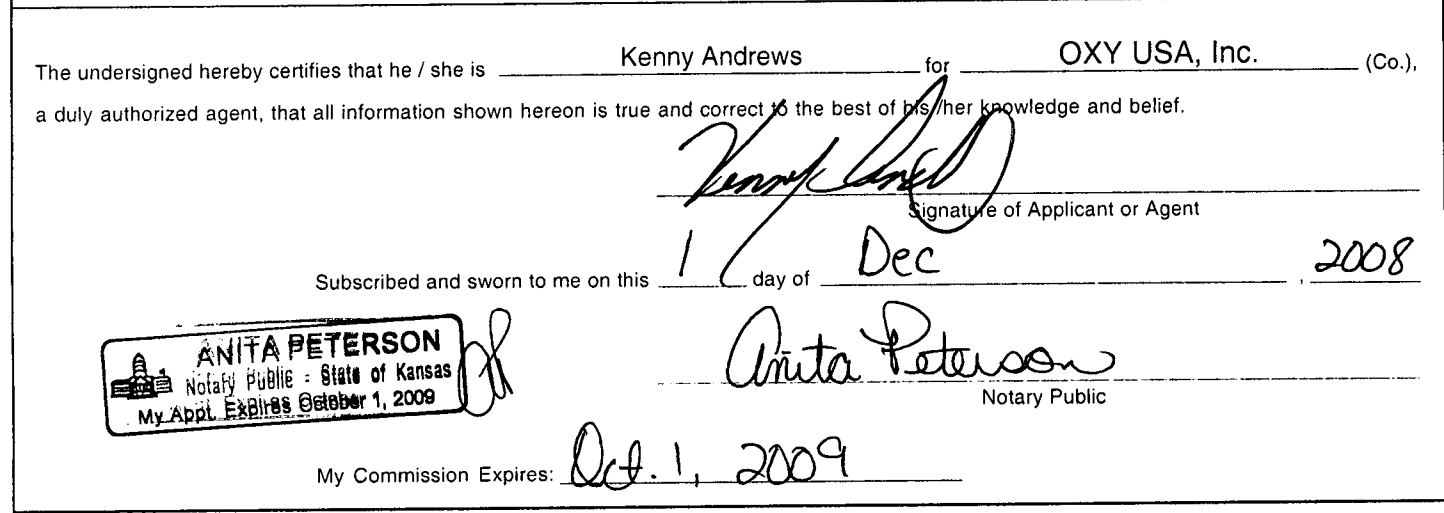 The undersigned hereby certifies that he / she is Kenny Andrews for OXY USA, Inc. (Co.),
a duly authorized agent, that all information shown hereon is true and correct to the best of his/her knowledge and belief.
Signature of Applicant or Agent
Subscribed and sworn to me on this 1 day of Dec , 2008
ANITA PETERSON
Notary Public - State of Kansas
My Appt. Expires October 1, 2009
Anita Peterson
Notary Public
My Commission Expires: Oct. 1, 2009